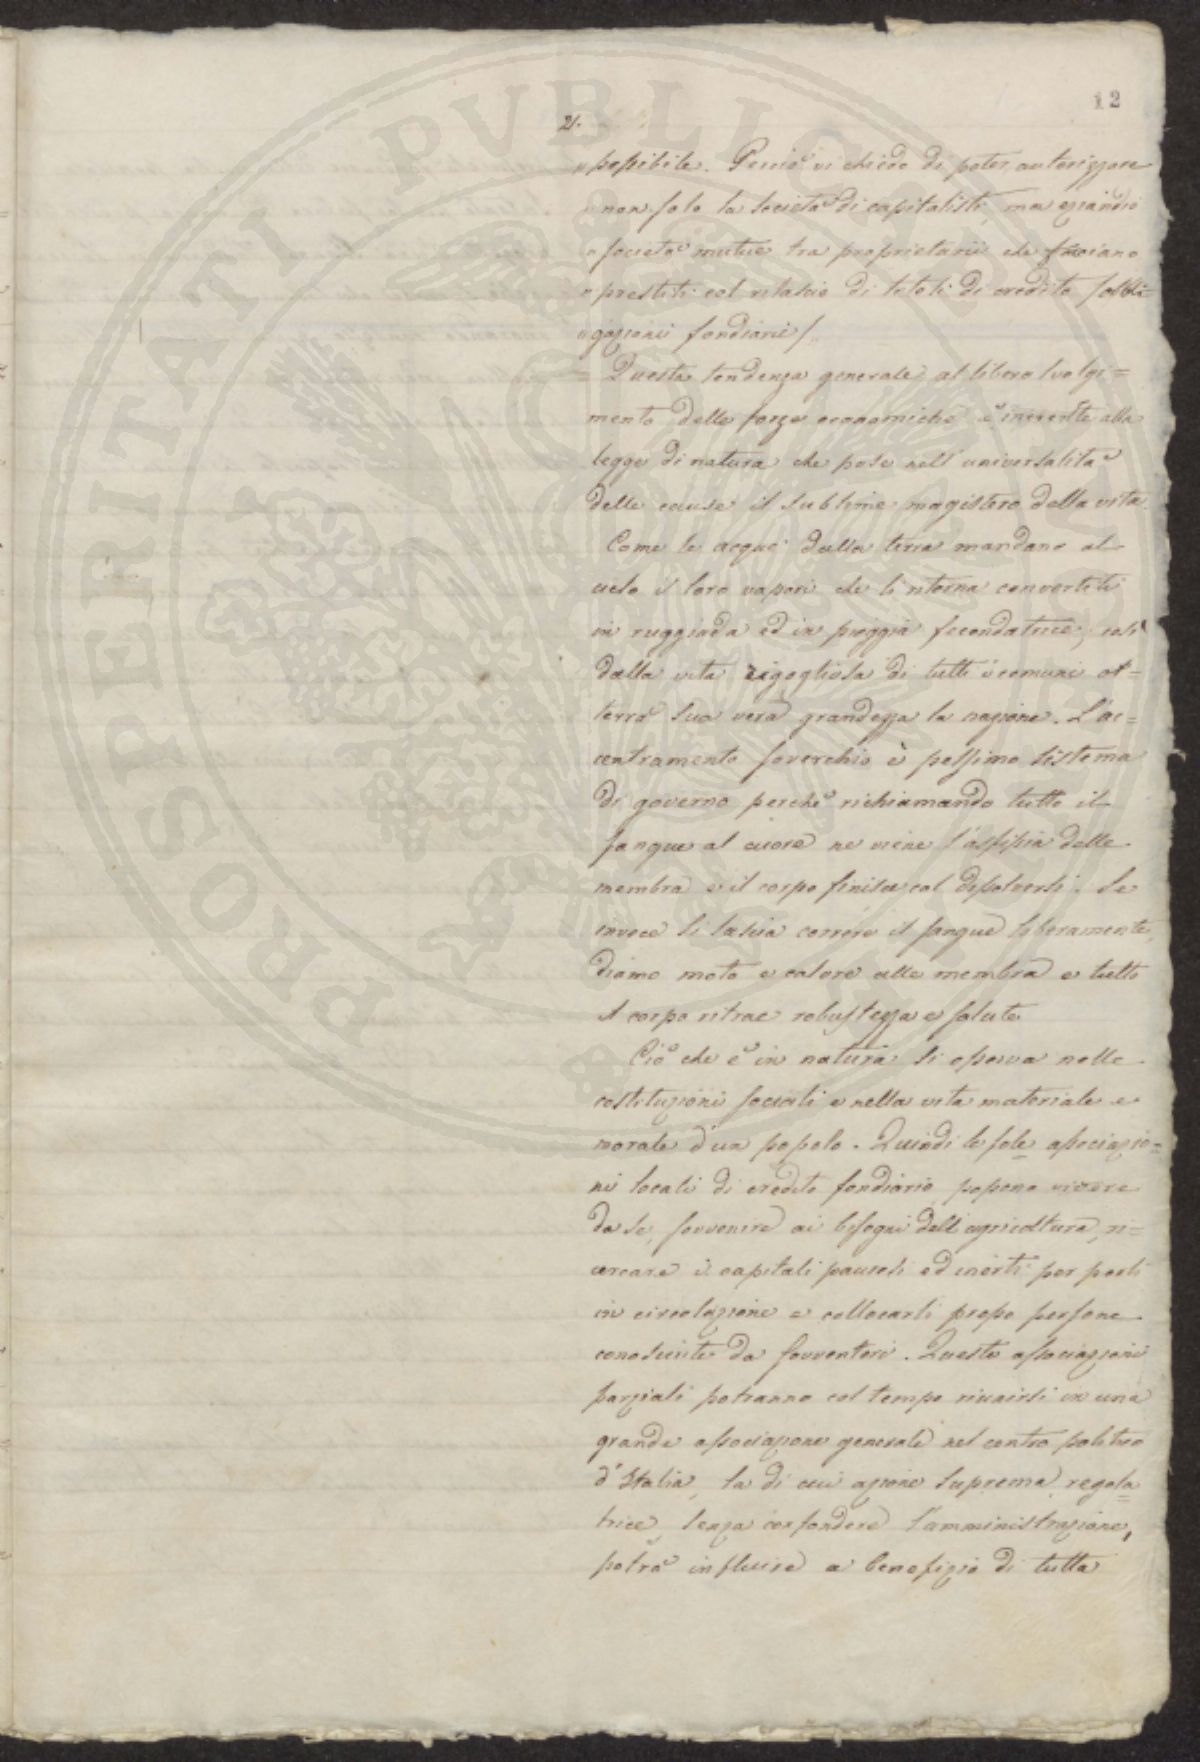 12
21.
" possibile. Perciò vi chiedo di poter autorizzare
" non solo la Società di capitalisti, ma eziandio
" società mutue tra proprietarii che facciano
" prestiti col rilascio di titoli di credito (obbli=
" gazioni fondiarie)"
= Questa tendenza generale al libero svolgi=
mento delle forze economiche è inerente alla
legge di natura che pose nell'universalità
delle cause il sublime magistero della vita.
Come le acque dalla terra mandano al
cielo i loro vapori che li ritorna convertiti
in ruggiada ed in pioggia fecondatrice, così
dalla vita rigogliosa di tutti i comuni ot=
terrà sua vera grandezza la nazione. L'ac=
centramento soverchio è pessimo sistema
di governo perchè richiamando tutto il
sangue al cuore ne viene l'asfissia delle
membra e il corpo finisce col dissolversi. Se
invece si lascia correre il sangue liberamente,
diamo moto e calore alle membra e tutto
il corpo ritrae robustezza e salute
Ciò che è in natura si osserva nelle
costituzioni sociali e nella vita materiale e
morale d'un popolo. Quindi le sole associazio=
ni locali di credito fondiario possono vivere
da se, sovvenire ai bisogni dell'agricoltura, ri=
cercare i capitali paurosi ed inerti per porli
in circolazione e collocarli presso persone
conosciute da sovventori. Queste associazioni
parziali potranno col tempo riunirsi in una
grande associazione generale nel centro politico
d'Italia, la di cui azione suprema regola=
trice, senza confondere l'amministrazione,
potrà influire a benefizio di tutta
PROSPERITATI PVBLICAE